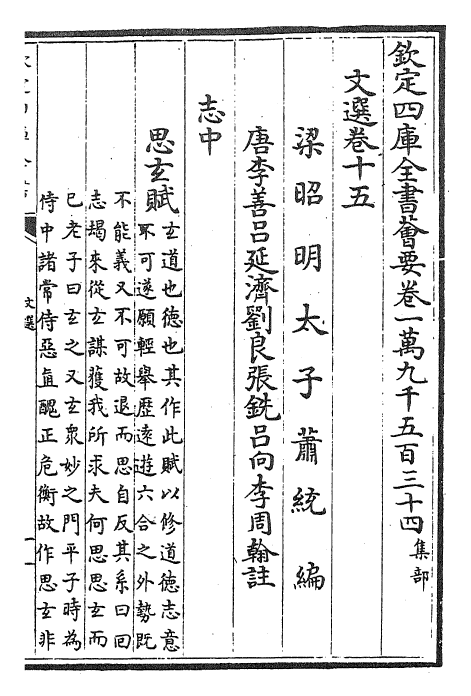 欽定四庫全書薈要卷一萬九千五百三十四 集部
文選卷十五
梁昭明太子蕭統編
唐李善呂延濟劉良張銑呂向李周翰註
志中
思玄賦
玄道也德也其作此賦以修道德志意
不可遂願輕舉歷遠遊六合之外勢既
不能義又不可故退而思自反其系曰回
志朅來從玄謀獲我所求夫何思思玄而
已老子曰玄之又玄衆妙之門平子時為
侍中諸常侍惡直醜正危衡故作思玄非
文選